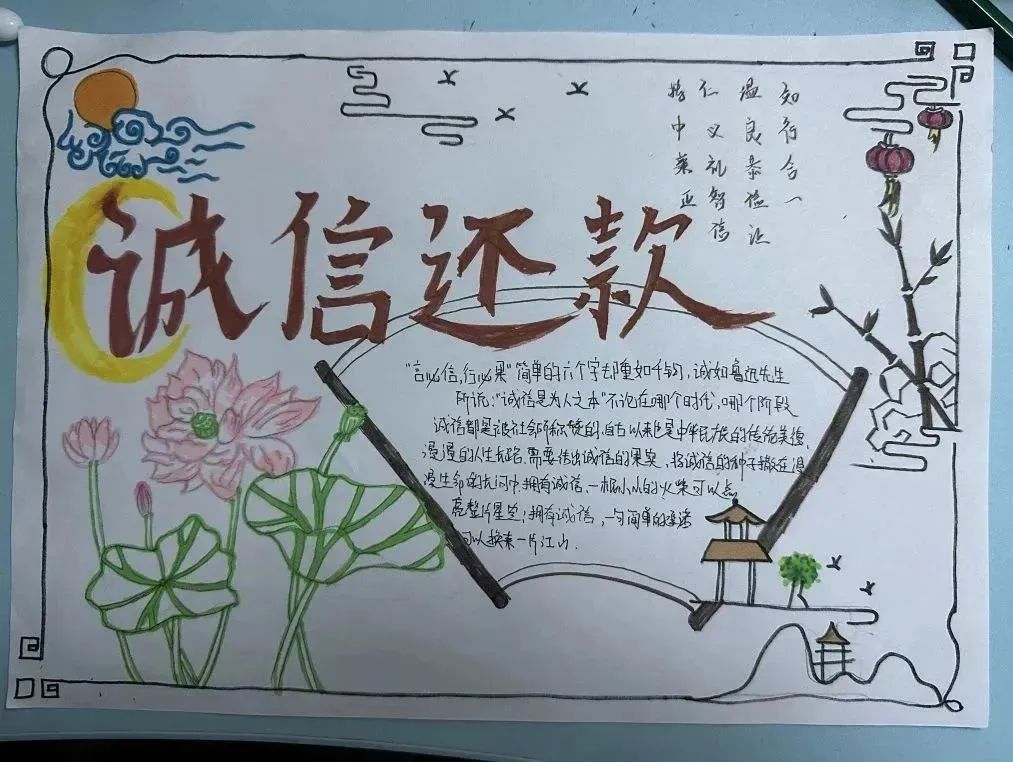 知行合一
温良恭俭让
仁义礼智信
持中秉正
诚信还款
"言必信,行必果"简单的六个字却重如千钧,诚如鲁迅先生
所说:"诚信是为人之本"不论在哪个时代,哪个阶段
诚信都是被社会所称赞的,自古以来也是中华民族的传统美德,
漫漫的人生长路,需要结出诚信的果实,将诚信的种子撒在漫
漫生命的长河中,拥有诚信,一根小小的火柴可以点
亮整片星空;拥有诚信,一句简单的承诺
可以换来一片江山.